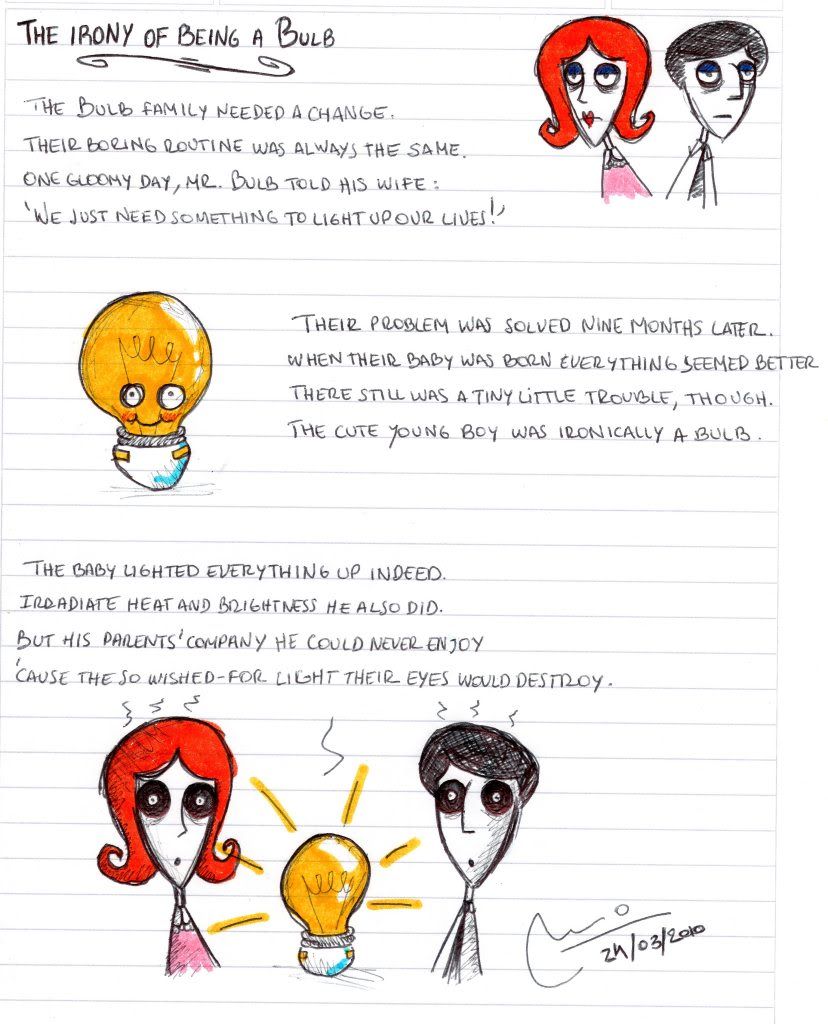 THE IRONY OF BEING A BULB
THE BULB FAMILY NEEDED A CHANGE.
THEIR BORING ROUTINE WAS ALWAYS THE SAME.
ONE GLOOMY DAY, MR. BULB TOLD HIS WIFE:
'WE JUST NEED SOMETHING TO LIGHT UP OUR LIVES!'
THEIR PROBLEM WAS SOLVED NINE MONTHS LATER.
WHEN THEIR BABY WAS BORN EVERYTHING SEEMED BETTER
THERE STILL WAS A TINY LITTLE TROUBLE, THOUGH.
THE CUTE YOUNG BOY WAS IRONICALLY A BULB.
THE BABY LIGHTED EVERYTHING UP INDEED.
IRRADIATE HEAT AND BRIGHTNESS HE ALSO DID.
BUT HIS PARENTS' COMPANY HE COULD NEVER ENJOY
'CAUSE THE SO WISHED-FOR LIGHT THEIR EYES WOULD DESTROY.
24/03/2010